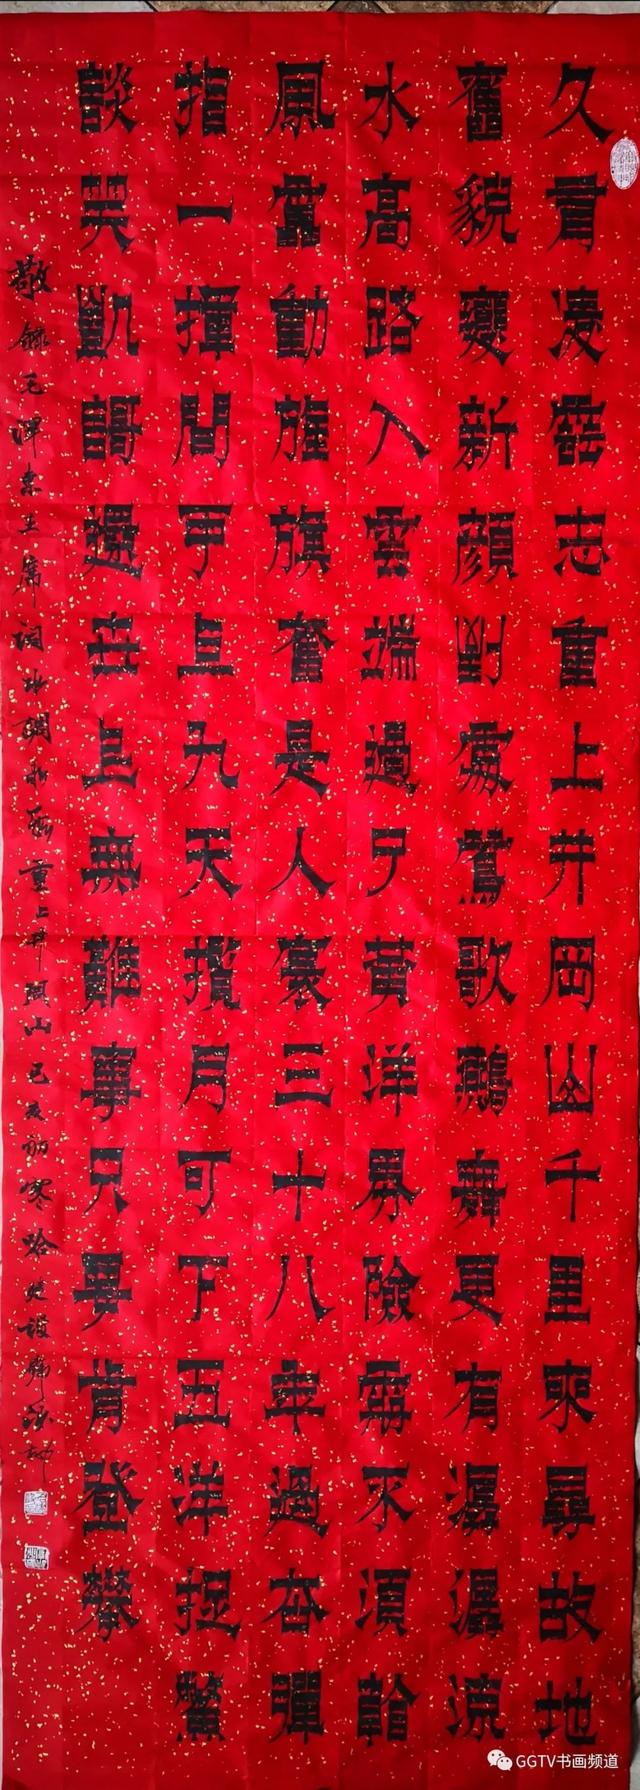 久有凌雲志重上井岡山千里來尋故地
舊貌變新顏到處鶯歌燕舞更有潺潺流
水高路入雲端過了黃洋界險處不須看
風雷動旌旗奮是人寰三十八年過去彈
指一揮間可上九天攬月可下五洋捉鱉
談笑凱謌還世上無難事只要肯登攀
敬錄毛澤東主席詞水調歌頭重上井岡山己亥初寒
GGTV书画频道